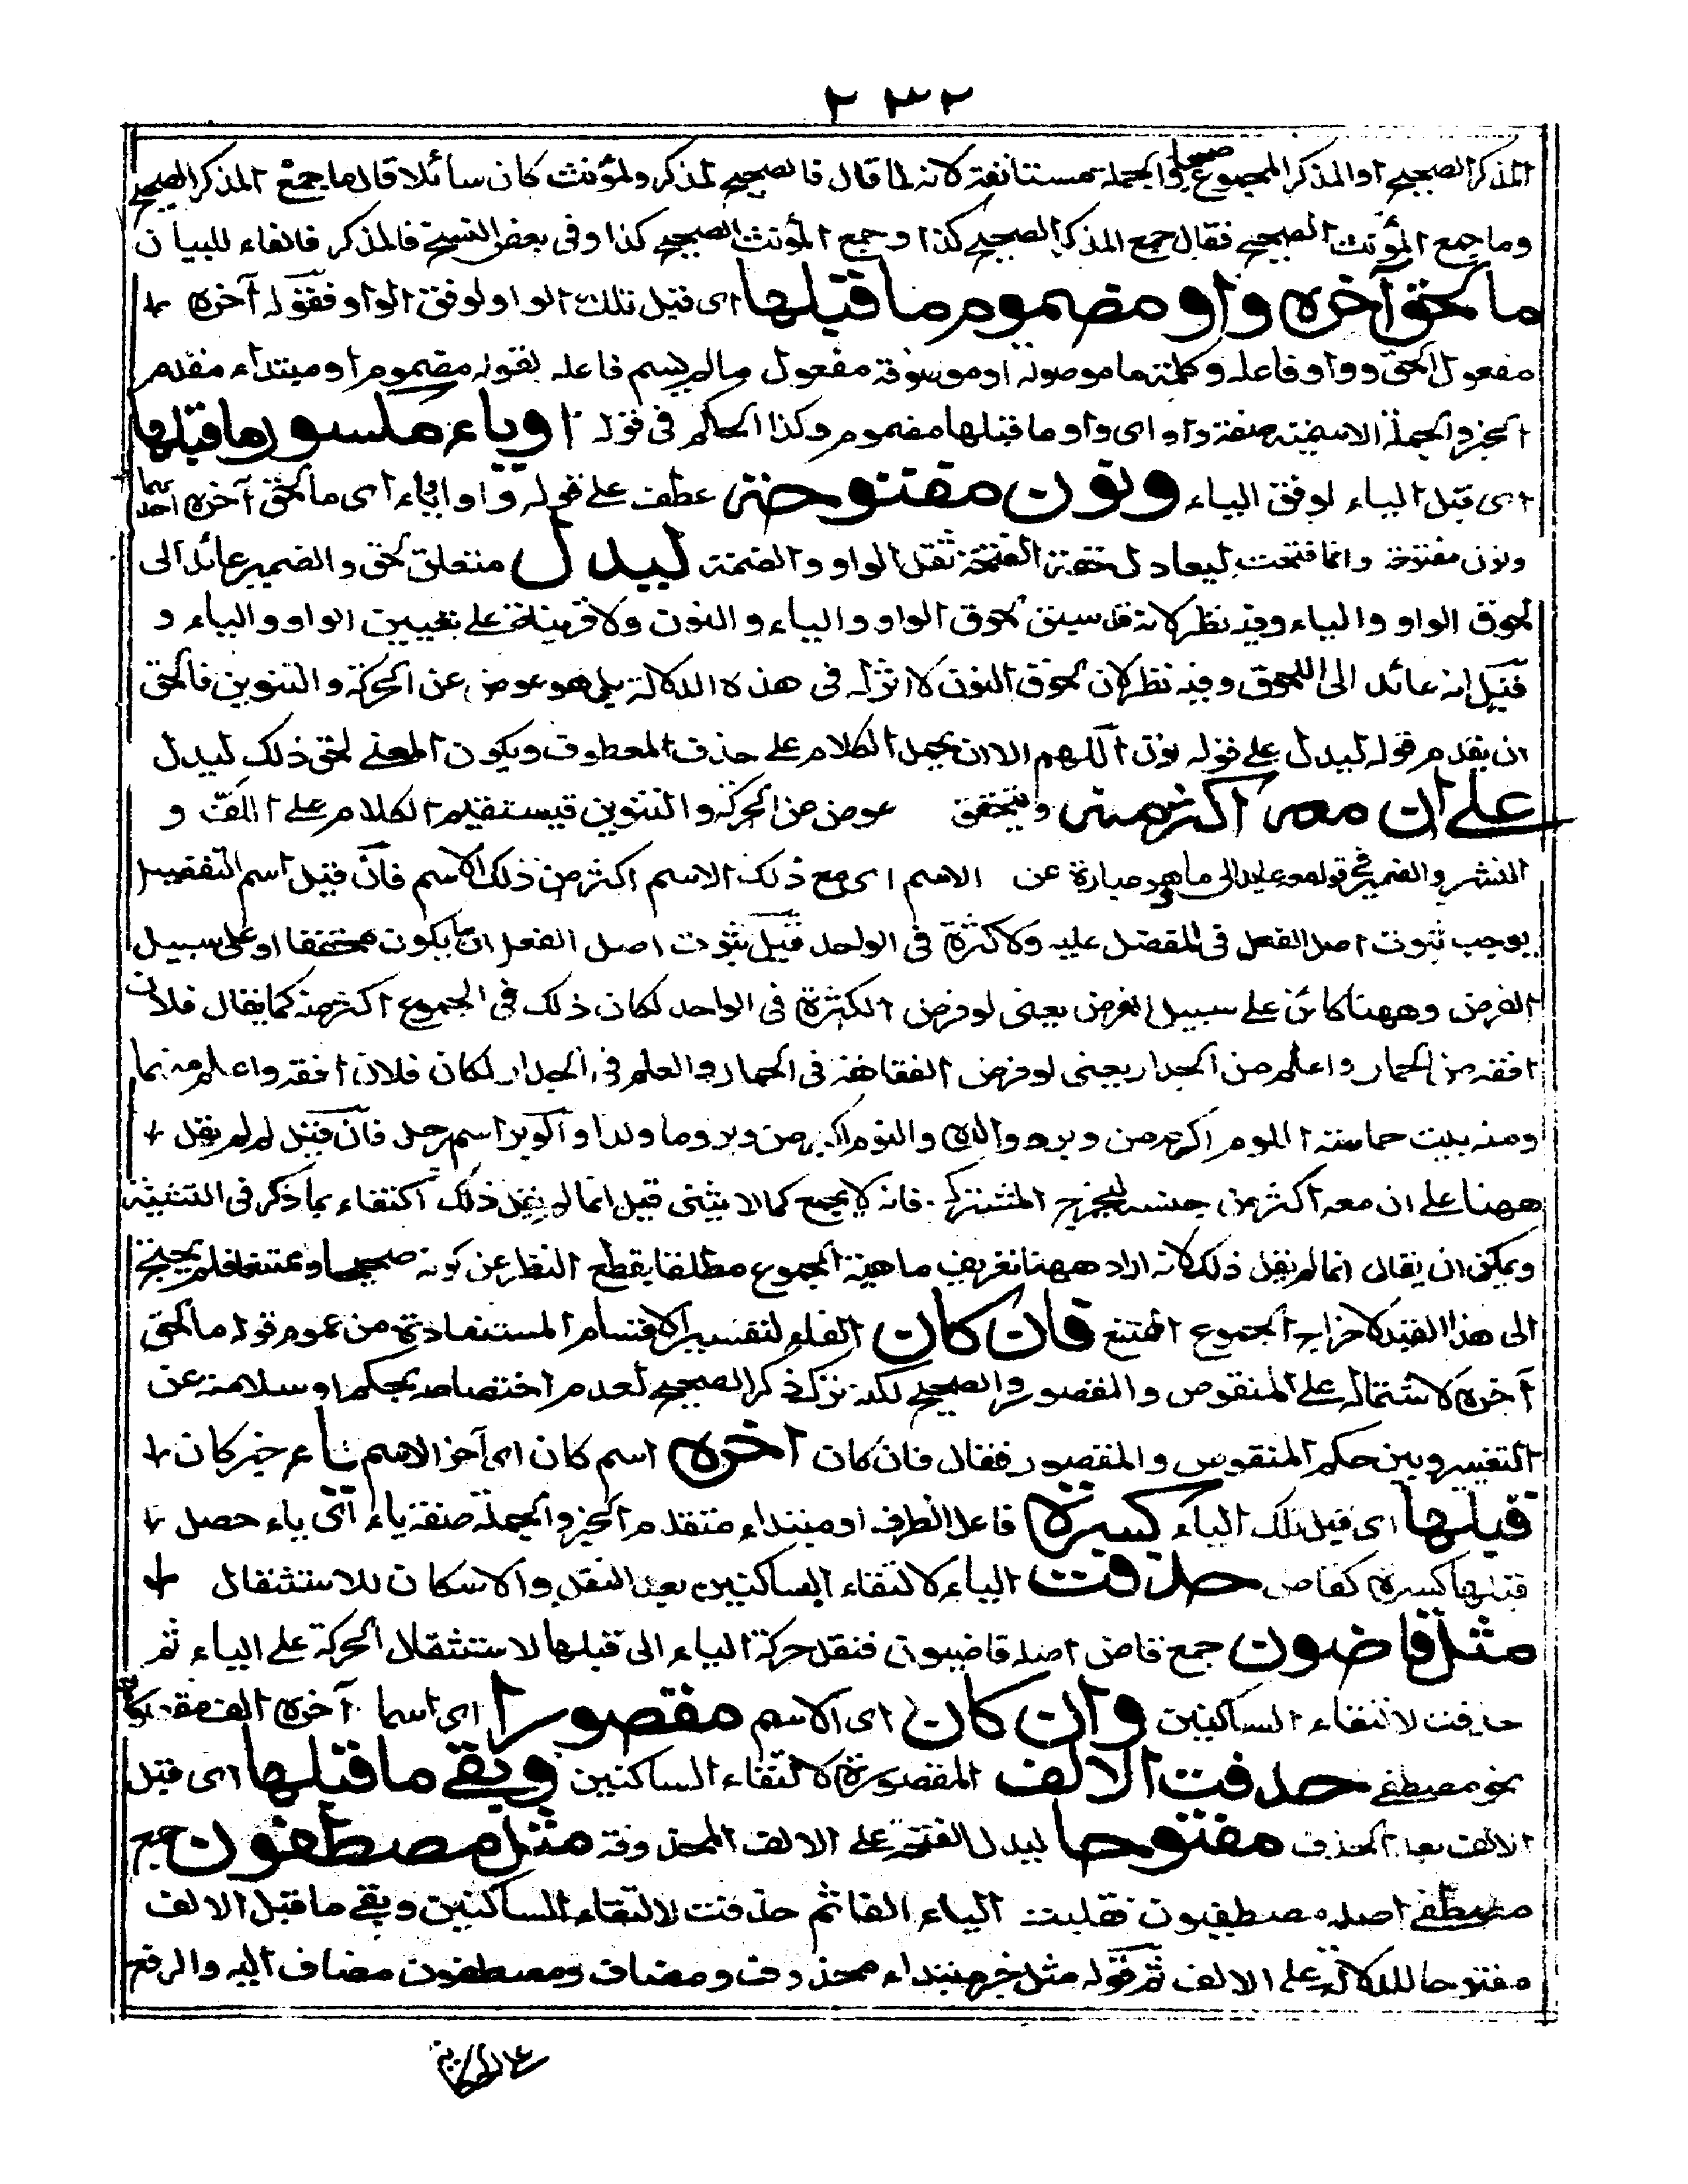 ٢٣٢
المذكر الصحيح او المذكر المجموع صحيحا والجملة مستانفة لانه لما قال فالصحيح لمذكر ولمؤنث كان سائلا قال ما جمع المذكر الصحيح
وما جمع المؤنث الصحيح فقال جمع المذكر الصحيح كذا وجمع المؤنث الصحيح كذا وفى بعض النسخ فالمذكر فالفاء للبيان
ما لحق آخره واو مضموم ما قبلها اى قبل تلك الواو لوفق الواو فقوله آخره
مفعول لحق وواو فاعله وكلمة ما موصولة او موصوفة مفعول ما لم يسم فاعله لقوله مضموم او مبتداء مقدم
الخبر والجملة الاسمية صفة واو اى واو ما قبلها مضموم وكذا الحكم فى قوله او ياء مكسور ما قبلها
اى قبل الياء لوفق الياء ونون مفتوحة عطف على قوله واو او ياء اى ما لحق آخره احدهما
ونون مفتوحة وانما فتحت ليعادل خفة الفتحة ثقل الواو والضمة ليدل متعلق لحق والضمير عائد الى
لحوق الواو والياء وفيه نظر لانه قد سبق لحوق الواو والياء والنون ولا قرينة على تعيين الواو والياء و
قيل انه عائد الى اللحوق وفيه نظر لان لحوق النون لا اثر له فى هذه الدلالة بل هو عوض عن الحركة والتنوين فالحق
ان يقدم قوله ليدل على قوله نون اللهم الا ان يحمل الكلام على حذف المعطوف ويكون المعنى لحق ذلك ليدل
على ان معه اكثر منه ويتحقق عوض من الحركة والتنوين فيستقيم الكلام على اللف و
النشر والضمير فى قوله معه عايد الى ما هو عبارة عن الاسم اى مع ذلك الاسم اكثر من ذلك الاسم فان قيل اسم التفضيل
يوجب ثبوت اصل الفعل فى المفضل عليه ولا كثرة فى الواحد قيل ثبوت اصل الفعل اما يكون محققا او على سبيل
الفرض وههنا كائن على سبيل الفرض يعنى لو فرض الكثرة فى الواحد لكان ذلك فى الجموع اكثر منه كما يقال فلان
افقه من الحمار واعلم من الجدار يعنى لو فرض الفقاهة فى الحمار والعلم فى الجدار لكان فلان افقه واعلم منهما
ومنه بيت حماسة اللوم اكرم من وبر ووالده واللوم اكرم من وبر وما ولدا واكوبر اسم رجل فان قيل لم لم يقل
ههنا على ان معه اكثر من جنسه ليخرج المشترك فانه لا يجمع كما لا يثنى قيل انما لم يقل ذلك اكتفاء بما ذكر فى التثنية
ويمكن ان يقال انما لم يقل ذلك لانه اراد ههنا تعريف ماهية الجموع مطلقا بقطع النظر عن كونه صحيحا او ممتنعا فلم يحتج
الى هذا القيد لاخراج الجموع الممتنع فان كان الفاء لتفسير الاقسام المستفادة من عموم قوله ما لحق
آخره لاشتماله على المنقوص والمقصور والصحيح لكنه ترك ذكر الصحيح لعدم اختصاصه بحكم او سلامته عن
التغيير وبين حكم المنقوص والمقصور فقال فان كان آخره اسم كان اى آخر الاسم ياء خبر كان
قبلها اى قبل تلك الياء كسرة فاعل الظرف او مبتداء متقدم الخبر والجملة صفة ياء اى ياء حصل
قبلها كسرة كقاض حذفت الياء لالتقاء الساكنين بعد النقل والاسكان للاستثقال
مثل قاضون جمع قاض اصله قاضيون فنقل حركة الياء الى قبلها لاستثقال الحركة على الياء ثم
حذفت لالتقاء الساكنين وان كان اى الاسم مقصورا اى اسما آخره الف مقصورة
نحو مصطفى حذفت الالف المقصورة لالتقاء الساكنين وبقى ما قبلها اى قبل
الالف بعد الحذف مفتوحا ليدل الفتحة على الالف المحذوفة مثل مصطفون جمع
مصطفى اصله مصطفيون فقلبت الياء الفا ثم حذفت لالتقاء الساكنين وبقى ما قبل الالف
مفتوحا للدلالة على الالف ثم قوله مثل خبر مبتداء محذوف ومضاف ومصطفون مضاف اليه والرفع